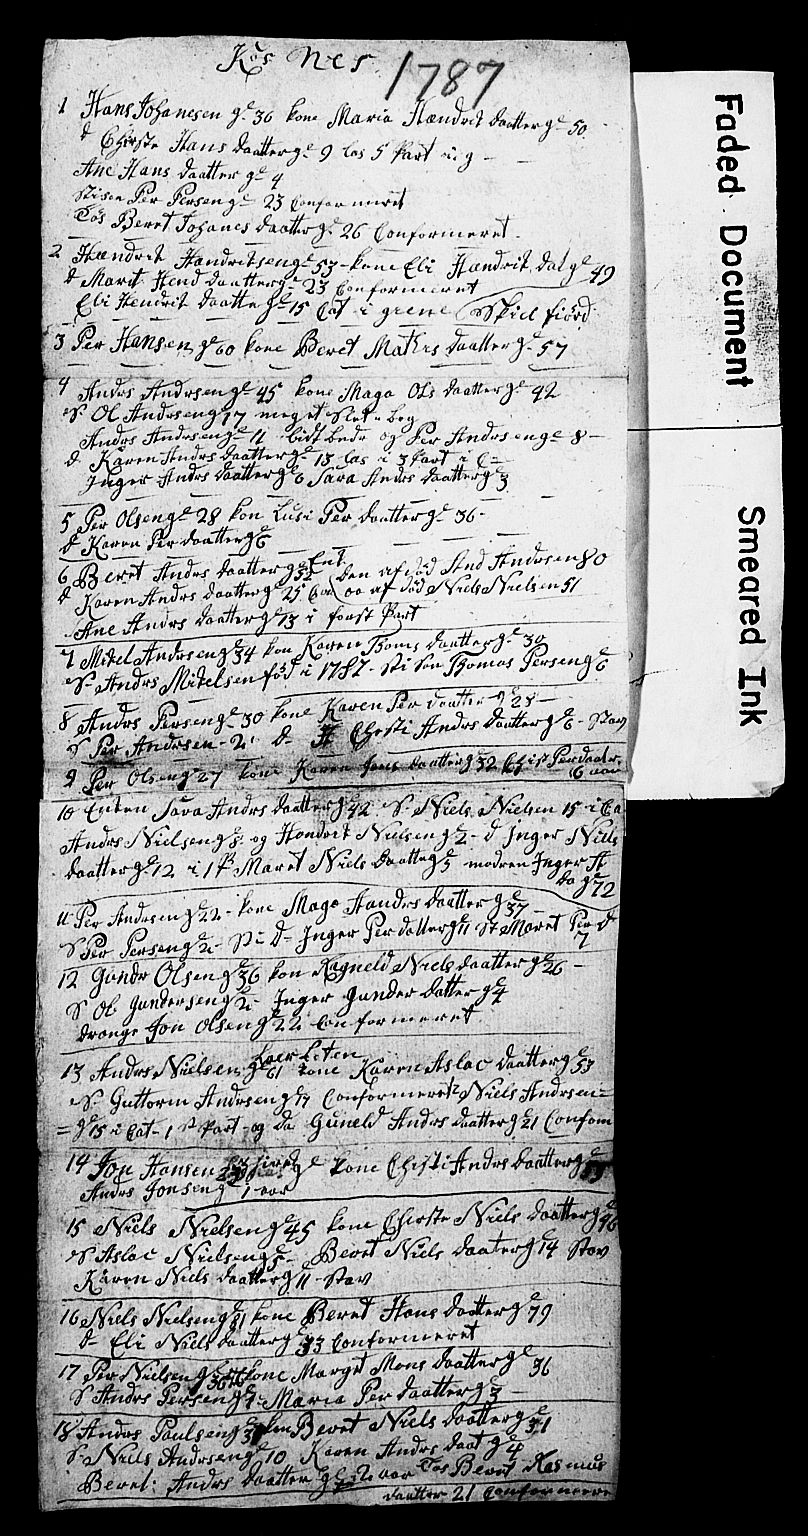 Kös Nes 1787
1 Hans Johanesen ge 36 kone Maria Hændrik daatter ge 50
d Chirste Hans daatter ge 9 las 5 Part
Ane Hans daatter ge 4
Stisøn Per Persen ge 23 Conformeret
Tös Beret Johanes daatter ge 26 Conformeret
2 Hændrik Hændriksen ge 53 kone Eli Hændrik dat ge 49
d Marit Hend daatter ge 23 Conformeret
Eli Hendrik daatte ge 15 Cat i Skiel fiörd
3 Per Hansen ge 60 kone Beret Mathis daatter ge 57
4 Andrs Andrsen ge 45 kone Maga Ols daatter ge 42
S Ol Andrsen ge 17 meget
Andrs Andrsen ge 11 lidt bedr og Per Andrsen ge 8
d Karen Andrs daatter ge 13 las i 3 Part i C
Inger Andrs daatter ge 6 Sara Andrs daatter ge 3
5 Per Olsen ge 28 kon Lusi Per daatter ge 36
d Karen Per daatter ge 6
6 Beret Andrs daatter ge 52 Ent den af död And Andrsen 80
d Karen Andrs daatter ge 25 Co oo af död Niels Nielsen 51
Ane Andrs daatter ge 13 i forst Part
7 Mikel Andrsen ge 34 kon Karen Thoms daatter ge 30
S Andrs Mikelsen föd i 1787 Sti Sön Thomas Persen ge 6
8 Andrs Persen ge 30 kone Karen Per daatter ge 28
S Per Andrsen 2 d Chersti Andrs daatter ge 6 Stav
9 Per Olsen ge 27 kone Karen Jons daatter ge 32 Per daater
6 aar
10 Enken Sara Andrs daatter ge 42 S Niels Nielsen 15 i Ca
Andrs Nielsen ge 8 og Hendrik Nielsen ge 2 d Inger Niels
daatter ge 12 i 1 P Maret Niels daatte ge 5 modren Inger A
da ge 72
11 Per Andrsen ge 22 kone Maga Handrs daatter ge 37
S Per Persen ge 2 Sti D Inger Per datter ge 11 St Maret Per D
7
12 Gundr Olsen ge 36 kon Ragneld Niels daatter ge 26
S Ol Gundersen ge 2 Inger Gunder datter ge 4
Drange Jon Olsen ge 22 Conformeret
13 Andrs Nielsen ge 61 kone Karen Aslac daatter ge 53
S Guttorm Andrsen ge 17 Conformeret Niels Andrsen =
= ge 15 i Cat 1 st Part og da Guneld Andrs daatter ge 21 Confom
14 Jon Hansen kone Chisti Andrs daatter ge
Andrs Jonsen ge 1 aar
15 Niels Nielsen ge 45 kone Chirste Niels daatter ge 46
S Aslac Nielsen ge 5 Beret Niels daater ge 14 Stav
Karen Niels daatter ge 11 Stav
16 Niels Nielsen ge 81 kone Beret Hans daatter ge 79
d Eli Niels daatter ge 33 Conformeret
17 Per Nielsen ge 36 kone Marget Mons daatter ge 36
S Andrs Persen ge 7 Maria Per daatter ge 3
18 Andrs Paulsen ge kon Beret Niels daatter ge 31
S Niels Andrsen ge 10 Karen Andrs daat ge 4
Beret Andrs daatter ge 2 aar Tös Beret Rasmus
daatter 21 Conformere
Faded Document
Smeared Ink